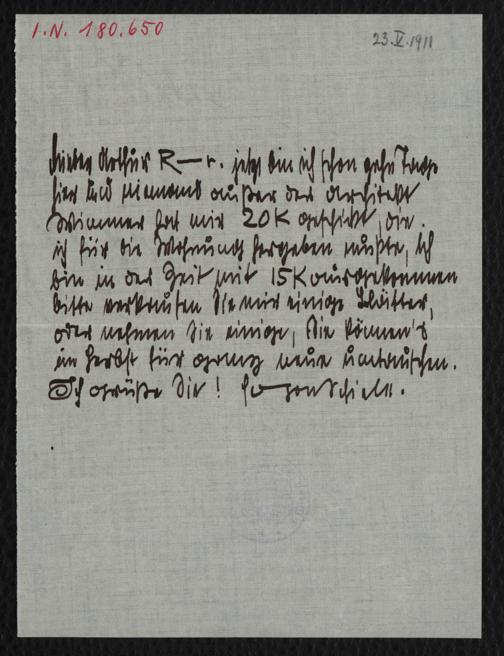 I.N. 180.650
23.V.1911
Lieber Arthur R—r. jetzt bin ich schon zehn Tage
hier und niemand außer der Architekt
Wimmer hat mir 20K geschickt, die
ich für die Wohnung hergeben mußte, Ich
bin in der Zeit mit 15K ausgekommen
bitte verkaufen Sie mir einige Blätter,
oder nehmen Sie einige, Sie können's
im Herbst für ganz neue umtauschen.
Ich grüße Sie! Egon Schiele.